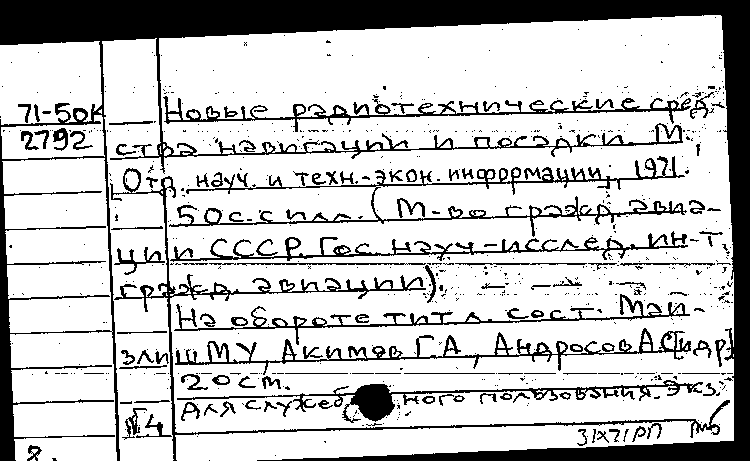 71-50К Новые радиотехнические сред-
2792 ства навигации и посадки. М.,
Отд. науч. и техн.-экон. информации, 1971.
50 с. с илл. (М-во гражд. авиа-
ции СССР. Гос. науч-исслед. ин-т.
гражд. авиации).
На обороте титл. сост. Май-
злиш М.У, Акимов Г.А, Андросов А.С [и др]
20 см.
Для служебного пользования. Экз.
№4
31X71РП